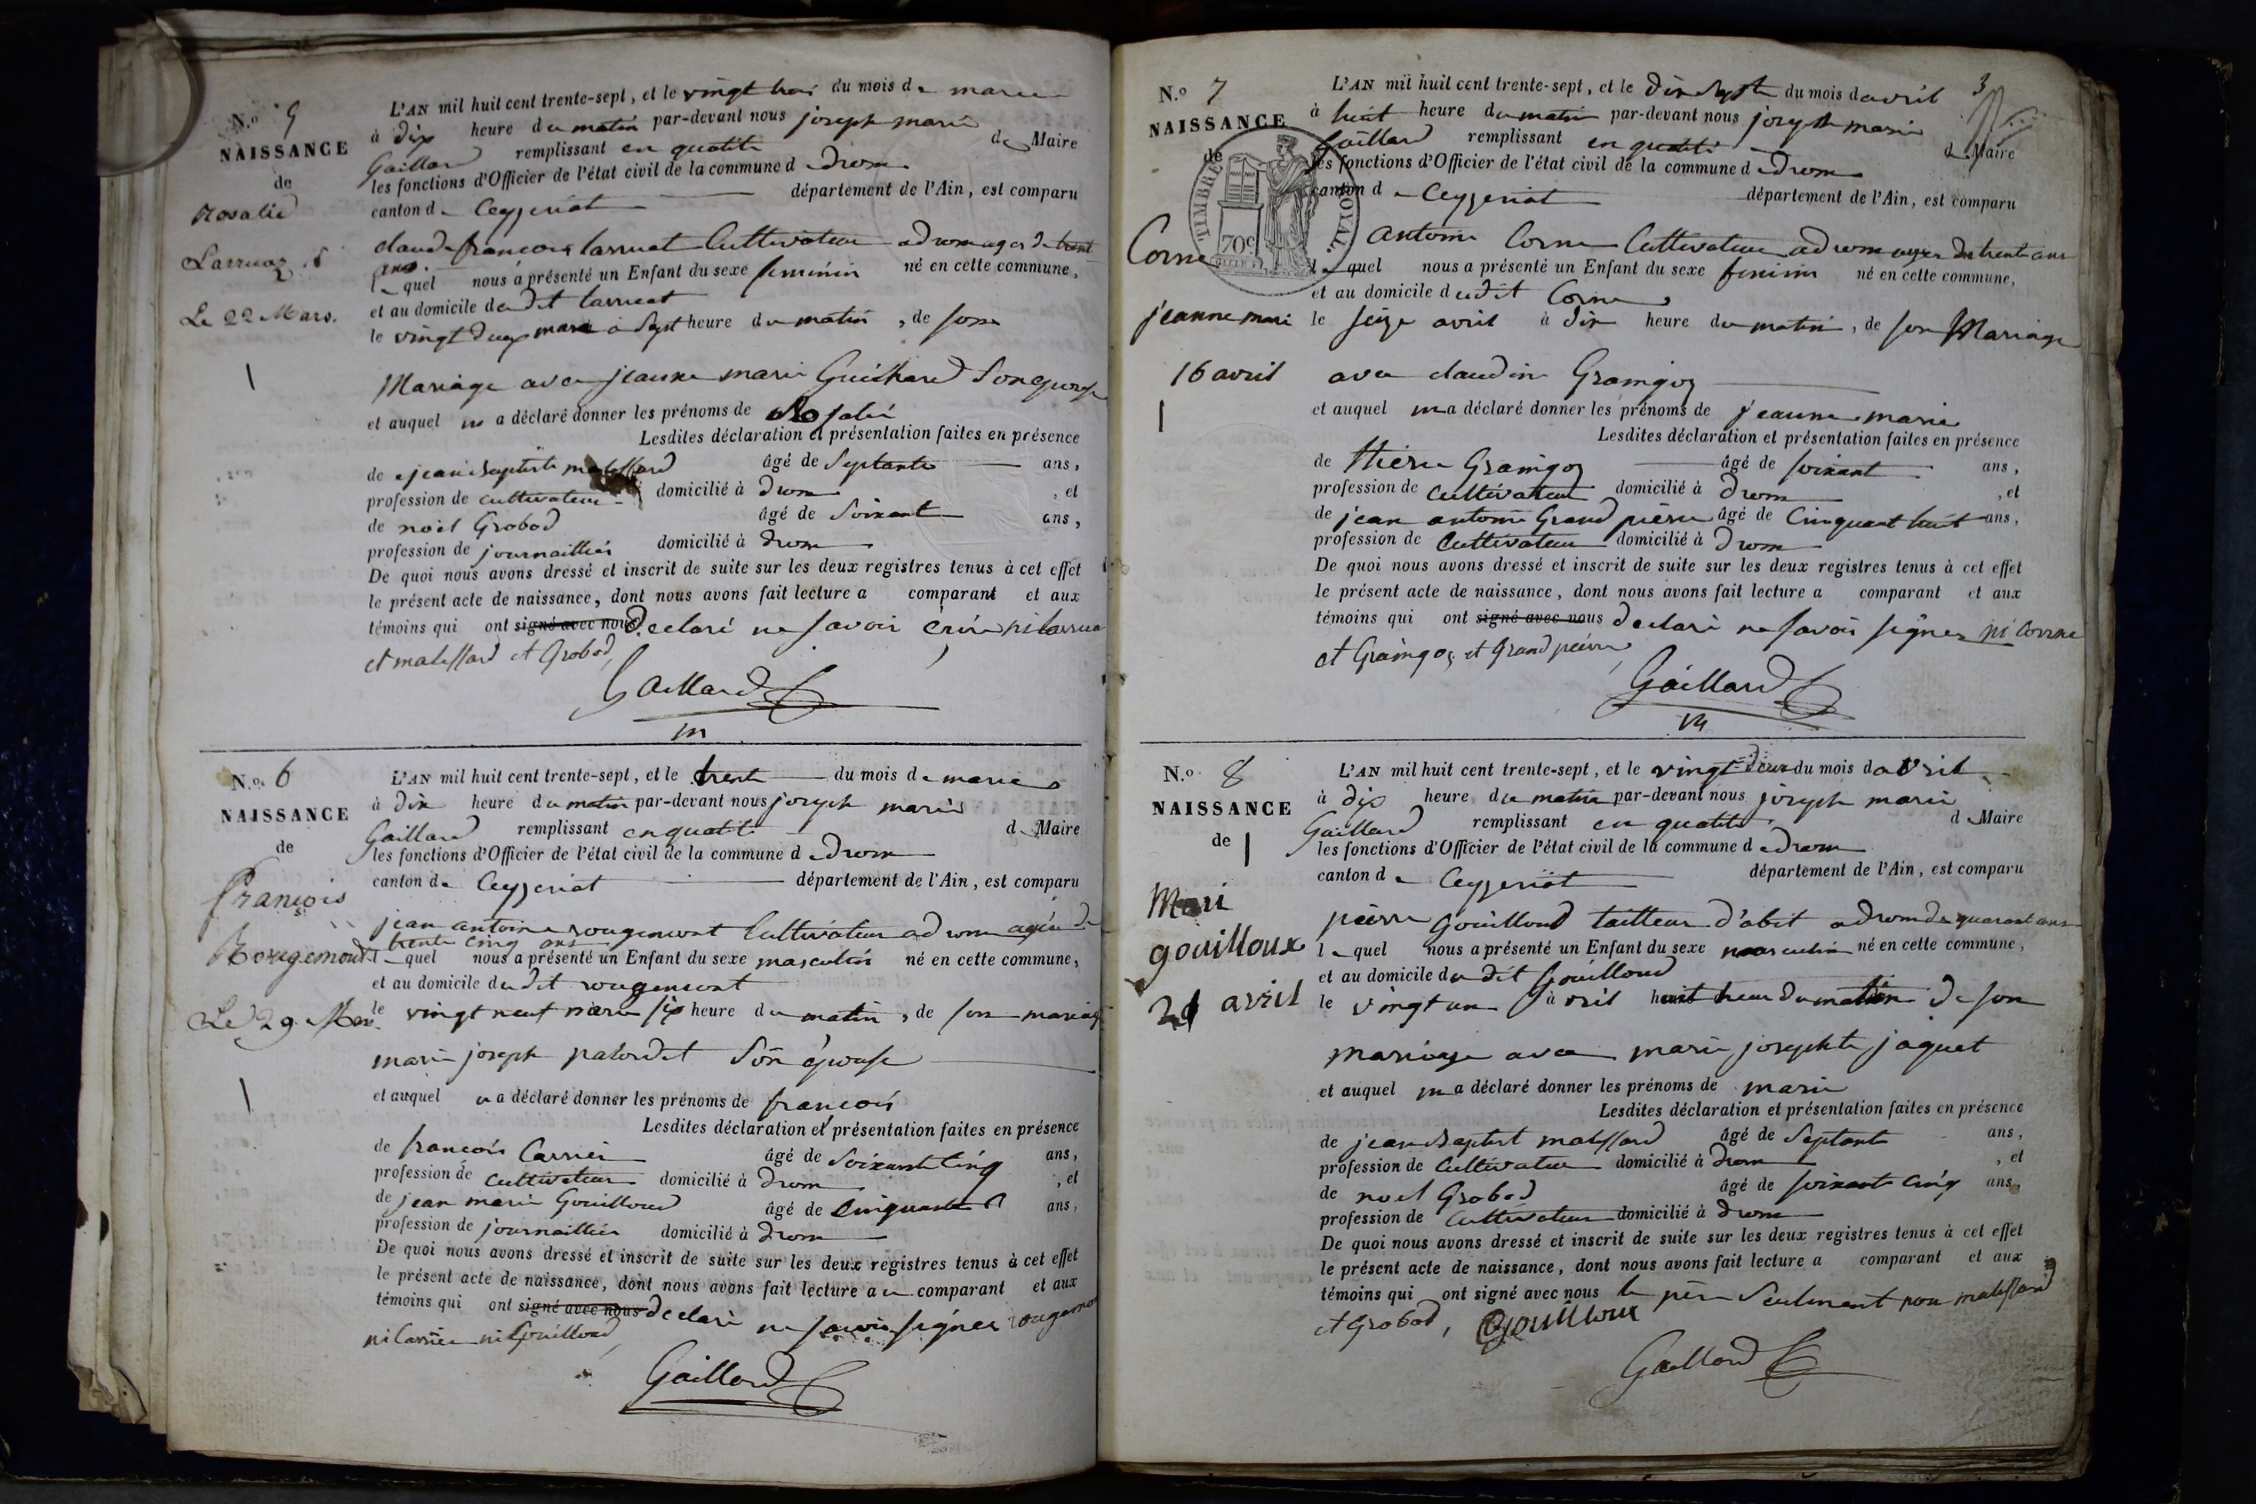 N.o 5
NAISSANCE
de
Rosalie
Larruaz
Le 22 Mars.
L'AN mil huit cent trente-sept, et le vingt troi du mois de mars
à dix heure du matin par-devant nous joseph marie
Gaillard remplissant en qualité de Maire
les fonctions d'Officier de l'état civil de la commune d e Drom
canton d e Ceyzeriat département de l'Ain, est comparu
claude françois larruat Cultivateur a drom agé de trent
ans
le quel nous a présenté un Enfant du sexe feminin né en cette commune,
et au domicile du dit larruat
le vingt deux mars à Sept heure du matin, de son
Mariage avec jeanne marie Guichard Son epouse
et auquel il a déclaré donner les prénoms de Rosalie
Lesdites déclaration et présentation faites en présence
de jean Baptiste matissard âgé de Septante ans,
profession de cultivateur domicilié à drom, et
de noël Grobod âgé de Soixant ans,
profession de journaillier domicilié à drom
De quoi nous avons dressé et inscrit de suite sur les deux registres tenus à cet effet
le présent acte de naissance, dont nous avons fait lecture a comparant et aux
témoins qui ont signé avec nous Declaré ne Savoir Crire ni larrua
et matissard et Grobod,
Gaillard
m
N.o 6
NAISSANCE
de
François
Rougemond
Le 29 Mars.
L'AN mil huit cent trente-sept, et le trent du mois de mars
à dix heure du matin par-devant nous joseph marie
Gaillard remplissant en qualité de Maire
les fonctions d'Officier de l'état civil de la commune d e Drom
canton de Ceyzeriat département de l'Ain, est comparu
jean antoine rougemont Cultivateur a drom agée de
trente cinq ans
le quel nous a présenté un Enfant du sexe masculin né en cette commune,
et au domicile du dit rougemont
le vingt neuf mars six heure du matin, de son mariage
marie joseph palordet Son épouse
et auquel il a déclaré donner les prénoms de françois
Lesdites déclaration et présentation faites en présence
de françois Carrier âgé de Soixant Cinq ans,
profession de cultivateur domicilié à drom, et
de jean marie Gouilloud âgé de Cinquante ans,
profession de journaillier domicilié à drom
De quoi nous avons dressé et inscrit de suite sur les deux registres tenus à cet effet
le présent acte de naissance, dont nous avons fait lecture au comparant et aux
témoins qui ont signé avec nous declaré ne savoir signer rougemon
ni Carrier ni Gouilloud,
Gaillard
3
N.o 7
NAISSANCE
de
TIMBRE ROYAL.
70c
Corne
jeanne mari
16 avril
L'AN mil huit cent trente-sept, et le Dix Sept du mois d avril
à huit heure du matin par-devant nous joseph marie
Gaillard remplissant en qualité de Maire
les fonctions d'Officier de l'état civil de la commune d e Drom
canton d e Ceyzeriat département de l'Ain, est comparu
antoine Corne Cultivateur a drom agé de trent ans
le quel nous a présenté un Enfant du sexe feminin né en cette commune,
et au domicile du dit Corne
le seize avril à dix heure du matin, de son Mariage
avec claudine Graingoz
et auquel il a déclaré donner les prénoms de jeanne marie
Lesdites déclaration et présentation faites en présence
de Graingoz âgé de soixant ans,
profession de Cultivateur domicilié à drom, et
de jean antoine Grand pierre âgé de Cinquant huit ans,
profession de Cultivateur domicilié à drom
De quoi nous avons dressé et inscrit de suite sur les deux registres tenus à cet effet
le présent acte de naissance, dont nous avons fait lecture a comparant et aux
témoins qui ont signé avec nous declaré ne savoir signer ni Corne
et Graingoz et Grand pierre,
Gaillard
m
N.o 8
NAISSANCE
de
Mari
gouilloux
21 avril
L'AN mil huit cent trente-sept, et le vingt Deux du mois d avril
à dix heure du matin par-devant nous joseph marie
Gaillard remplissant en qualité de Maire
les fonctions d'Officier de l'état civil de la commune d e Drom
canton d e Ceyzeriat département de l'Ain, est comparu
pierre Gouilloud tailleur d'abit a drom de quarant ans
le quel nous a présenté un Enfant du sexe masculin né en cette commune,
et au domicile du dit Gouilloud
le vingt un avril huit heur du matin de son
mariage avec marie josephte jaquet
et auquel il a déclaré donner les prénoms de marie
Lesdites déclaration et présentation faites en présence
de jean Baptist matissard âgé de Septante ans,
profession de Cultivateur domicilié à drom, et
de noel Grobod âgé de soixante cinq ans,
profession de Cultivateur domicilié à drom
De quoi nous avons dressé et inscrit de suite sur les deux registres tenus à cet effet
le présent acte de naissance, dont nous avons fait lecture a comparant et aux
témoins qui ont signé avec nous le père Seulment non matissard
et Grobod, Gouilloux
Gaillard